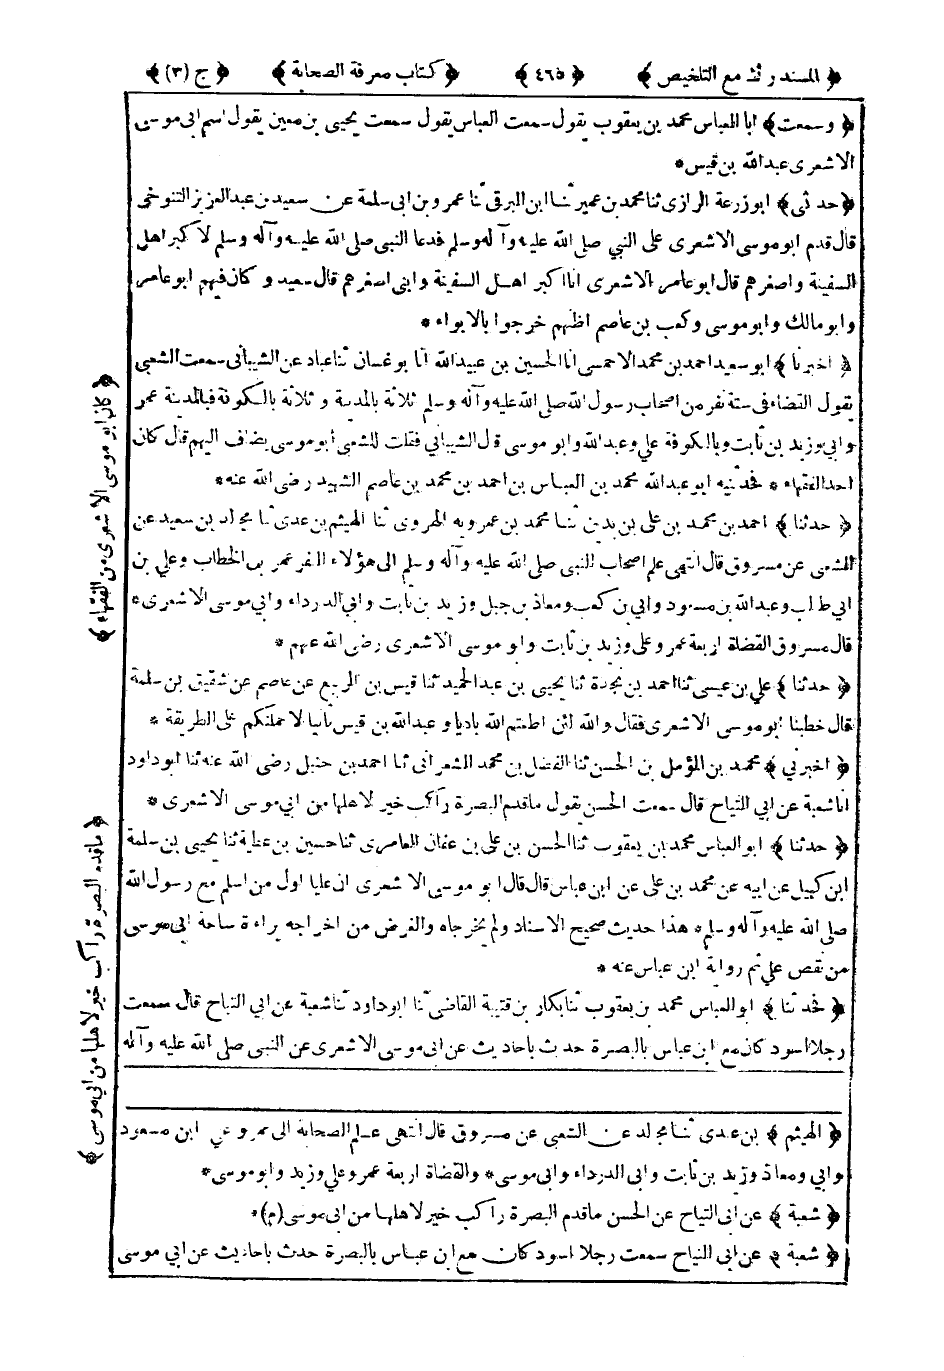 ﴿ المستدرك مع التلخيص ﴾ ﴿ ٤٦٥ ﴾ ﴿ كتاب معرفة الصحابة ﴾ ﴿ ج (٣) ﴾
﴿ وسمعت ﴾ ابا العباس محمد بن يعقوب يقول سمعت العباس يقول سمعت يحيى بن معين يقول اسم ابى موسى
الاشعرى عبدالله بن قيس*
﴿ حدثنى ﴾ ابو زرعة الرازى ثنا محمد بن عمير ثنا ابن البرقى ثنا عمرو بن ابى سلمة عن سعيد بن عبدالعزيز التنوخى
قال قدم ابو موسى الاشعرى على النبي صلى الله عليه وآله وسلم فدعا النبى صلى الله عليه وآله وسلم لاكبر اهل
السفينة واصغرهم قال ابو عامر الاشعرى انا اكبر اهل السفينة وابنى اصغرهم قال سعيد وكان فيهم ابو عامر
وابو مالك وابو موسى وكعب بن عاصم اظنهم خرجوا بالابواء *
﴿ اخبرنا ﴾ ابو سعيد احمد بن محمد الاحمسى انا الحسين بن عبيدالله انا ابو غسان ثنا عباد عن الشيبانى سمعت الشعبى
يقول القضاء فى ستة نفر من اصحاب رسول الله صلى الله عليه وآله وسلم ثلاثة بالمدينة وثلاثة بالكوفة فبالمدينة عمر
وابي وزيد بن ثابت وبالكوفة علي وعبدالله وابو موسى قال الشيباني فقلت للشعبى أبو موسى يضاف اليهم قال كان
احد الفقهاء * فحدثنيه ابو عبدالله محمد بن العباس بن احمد بن محمد بن عاصم الشهيد رضى الله عنه*
﴿ حدثنا ﴾ احمد بن محمد بن على بن رزين ثنا محمد بن عمرويه الهروى ثنا الهيثم بن عدى ثنا مجالد بن سعيد عن
الشعبى عن مسروق قال انتهى علم اصحاب النبى صلى الله عليه وآله وسلم الى هؤلاء النفر عمر بن الخطاب وعلي بن
ابي طالب وعبدالله بن مسعود وابي بن كعب ومعاذ بن جبل وزيد بن ثابت وابي الدرداء وابي موسى الاشعرى*
قال مسروق القضاة اربعة عمر وعلى وزيد بن ثابت وابو موسى الاشعرى رضى الله عنهم *
﴿ حدثنا ﴾ علي بن عيسى ثنا احمد بن نجدة ثنا يحيى بن عبدالحميد ثنا قيس بن الربيع عن عاصم عن شقيق بن سلمة
قال خطبنا ابو موسى الاشعرى فقال والله لئن اطعتم الله باديا وعبدالله بن قيس ثانيا لاحملنكم على الطريقة *
﴿ اخبرني ﴾ محمد بن المؤمل بن الحسن ثنا الفضل بن محمد الشعرانى ثنا احمد بن حنبل رضى الله عنه ثنا ابو داود
انا شعبة عن ابي التياح قال سمعت الحسن يقول ما قدم البصرة راكب خير لاهلها من ابي موسى الاشعرى *
﴿ حدثنا ﴾ ابو العباس محمد بن يعقوب ثنا الحسن بن على بن عفان العامرى ثنا حسين بن عطية ثنا يحيى بن سلمة
ابن كهيل عن ابيه عن محمد بن على عن ابن عباس قال قال ابو موسى الاشعرى ان عليا اول من اسلم مع رسول الله
صلى الله عليه وآله وسلم* هذا حديث صحيح الاسناد ولم يخرجاه والغرض من اخراجه براءة ساحة ابى موسى
من نقص علي ثم رواية ابن عباس عنه *
﴿ فحدثنا ﴾ ابو العباس محمد بن يعقوب ثنا بكار بن قتيبة القاضى ثنا ابو داود ثنا شعبة عن ابي التياح قال سمعت
رجلا اسود كان مع ابن عباس بالبصرة حدث باحاديث عن ابى موسى الاشعرى عن النبى صلى الله عليه وآله
﴿ الهيثم ﴾ بن عدى ثنا مجالد عن الشعبى عن مسروق قال انتهى علم الصحابة الى عمر وعلي ابن مسعود
وابي ومعاذ وزيد بن ثابت وابى الدرداء وابى موسى* والقضاة اربعة عمر وعلي وزيد وابو موسى*
﴿ شعبة ﴾ عن ابى التياح عن الحسن ما قدم البصرة راكب خير لاهلها من ابى موسى (م)*
﴿ شعبة ﴾ عن ابى التياح سمعت رجلا اسود كان مع ابن عباس بالبصرة حدث باحاديث عن ابي موسى
﴿ كان ابو موسى الاشعرى من الفقهاء ﴾
﴿ ما قدم البصرة راكب خير لاهلها من ابي موسى ﴾